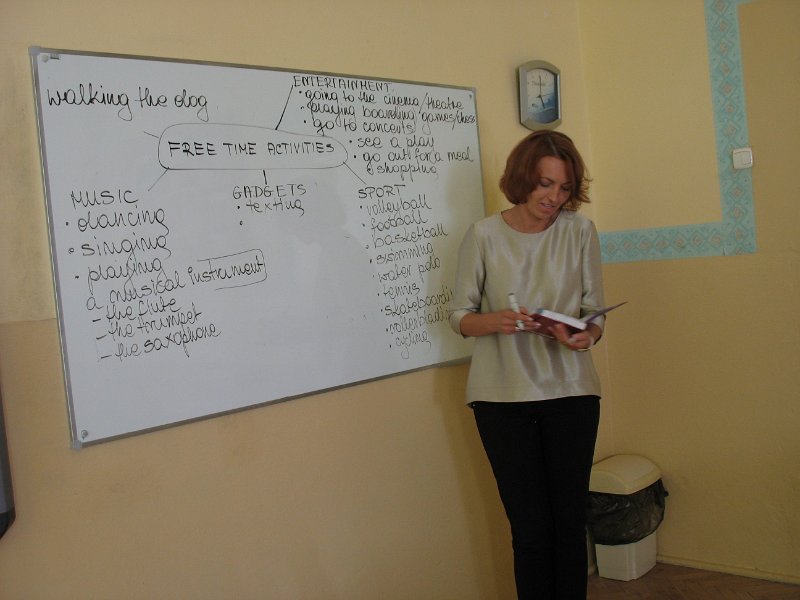 walking the dog
ENTERTAINMENT
• going to the cinema/theatre
• playing boarding games/chess
• go to concerts
• see a play
• go out for a meal
• shopping
FREE TIME ACTIVITIES
MUSIC
• dancing
• singing
• playing
a musical instrument
- the flute
- the trumpet
- the saxophone
GADGETS
• texting
•
SPORT
• volleyball
• football
• basketball
• swimming
• water polo
• tennis
• skateboardi
• rollerbladi
• cycling